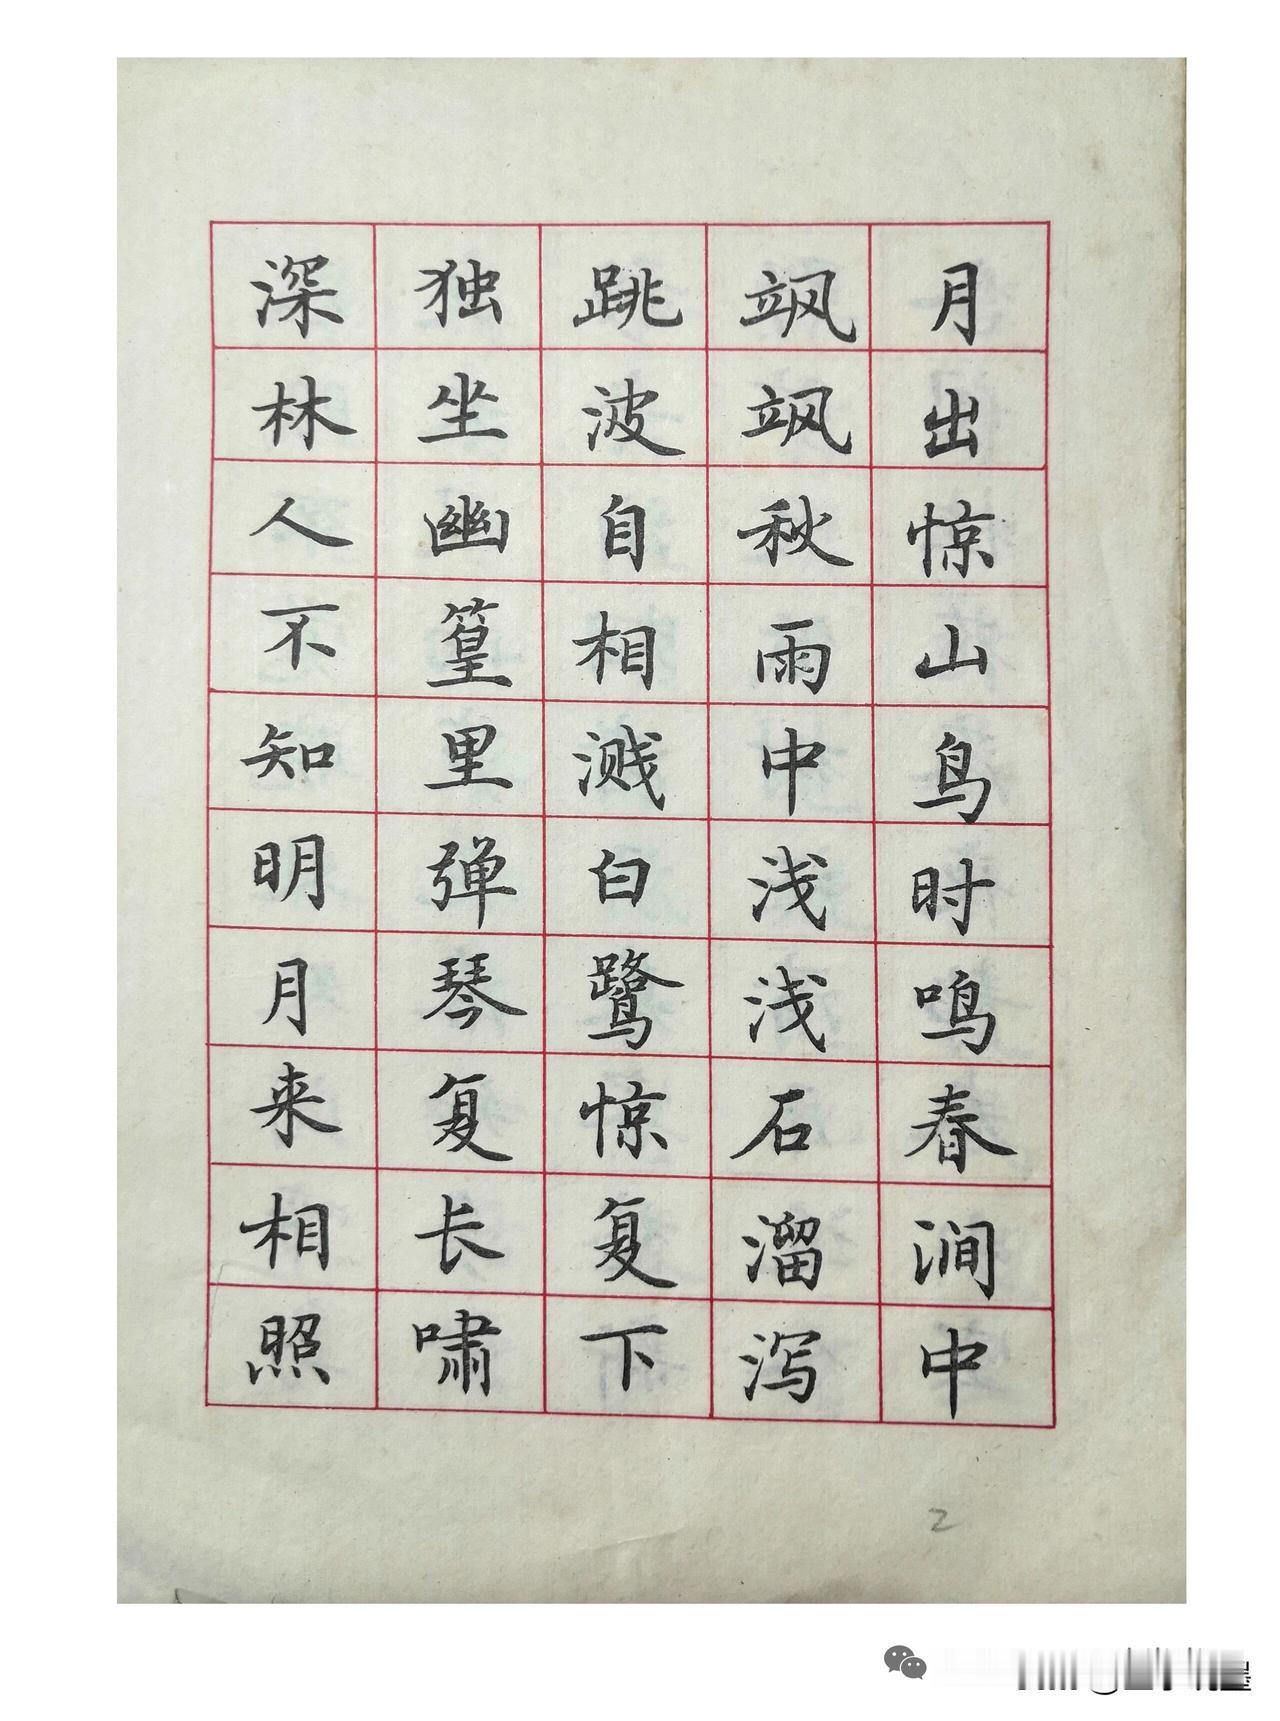 月出惊山鸟时鸣春涧中
飒飒秋雨中浅浅石溜泻
跳波自相溅白鹭惊复下
独坐幽篁里弹琴复长啸
深林人不知明月来相照
2